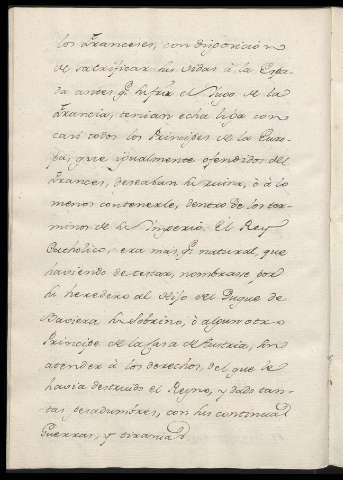 los Franceses, con disposicion
de sacrificar sus vidas à la Espa-
da antes q.e sufrir el Jugo de la
Francia; tenian echa liga con
casi todos los Principes de la Euro-
pa, que igualmente ofendidos del
Frances, deseaban su ruina, ò à lo
menos contenerle, dentro de los ter-
minos de su Imperio. El Rey
Catholico, era mas q.e natural, que
haviendo de testar, nombrase por
su heredero al Hijo del Duque de
Baviera su Sobrino, ò algun otro
Principe de la Casa de Austria, sin
atender à los derechos, del que le
havia destruido el Reyno, y dado tan-
tas pesadumbres, con sus continuas
Guerras, y tiranias